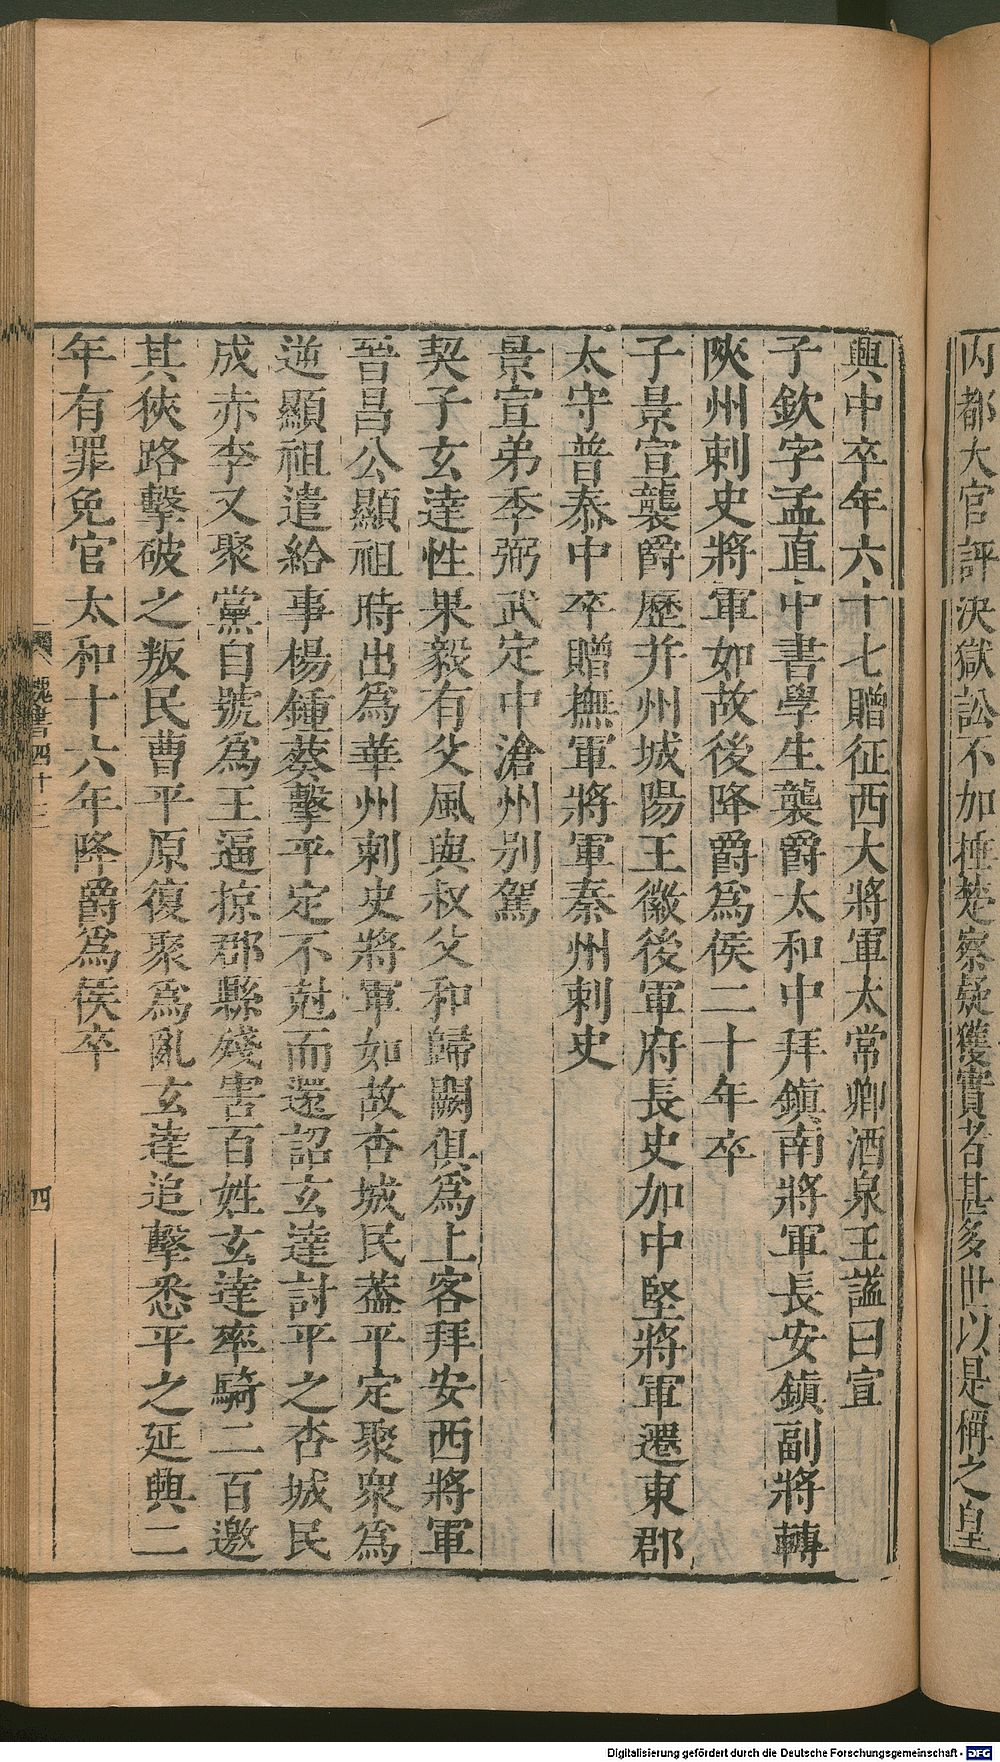 內都大官評決獄訟不加捶楚察疑獲實者甚多世以是稱之皇
興中卒年六十七贈征西大將軍太常卿酒泉王謚曰宣
子欽字孟直中書學生襲爵太和中拜鎮南將軍長安鎮副將轉
陝州刺史將軍如故後降爵爲侯二十年卒
子景宣襲爵歷并州城陽王徽後軍府長史加中堅將軍遷東郡
太守普泰中卒贈撫軍將軍秦州刺史
景宣弟季弼武定中滄州别駕
契子玄達性果毅有父風與叔父和歸闕俱爲上客拜安西將軍
晉昌公顯祖時出爲華州刺史將軍如故杏城民蓋平定聚衆爲
逆顯祖遣給事楊鍾葵擊平定不尅而還詔玄達討平之杏城民
成赤李又聚黨自號爲王逼掠郡縣殘害百姓玄達率騎二百邀
其狹路擊破之叛民曹平原復聚爲亂玄達追擊悉平之延興二
年有罪免官太和十六年降爵爲侯卒
魏書四十三
四
Digitalisierung gefördert durch die Deutsche Forschungsgemeinschaft - DFG